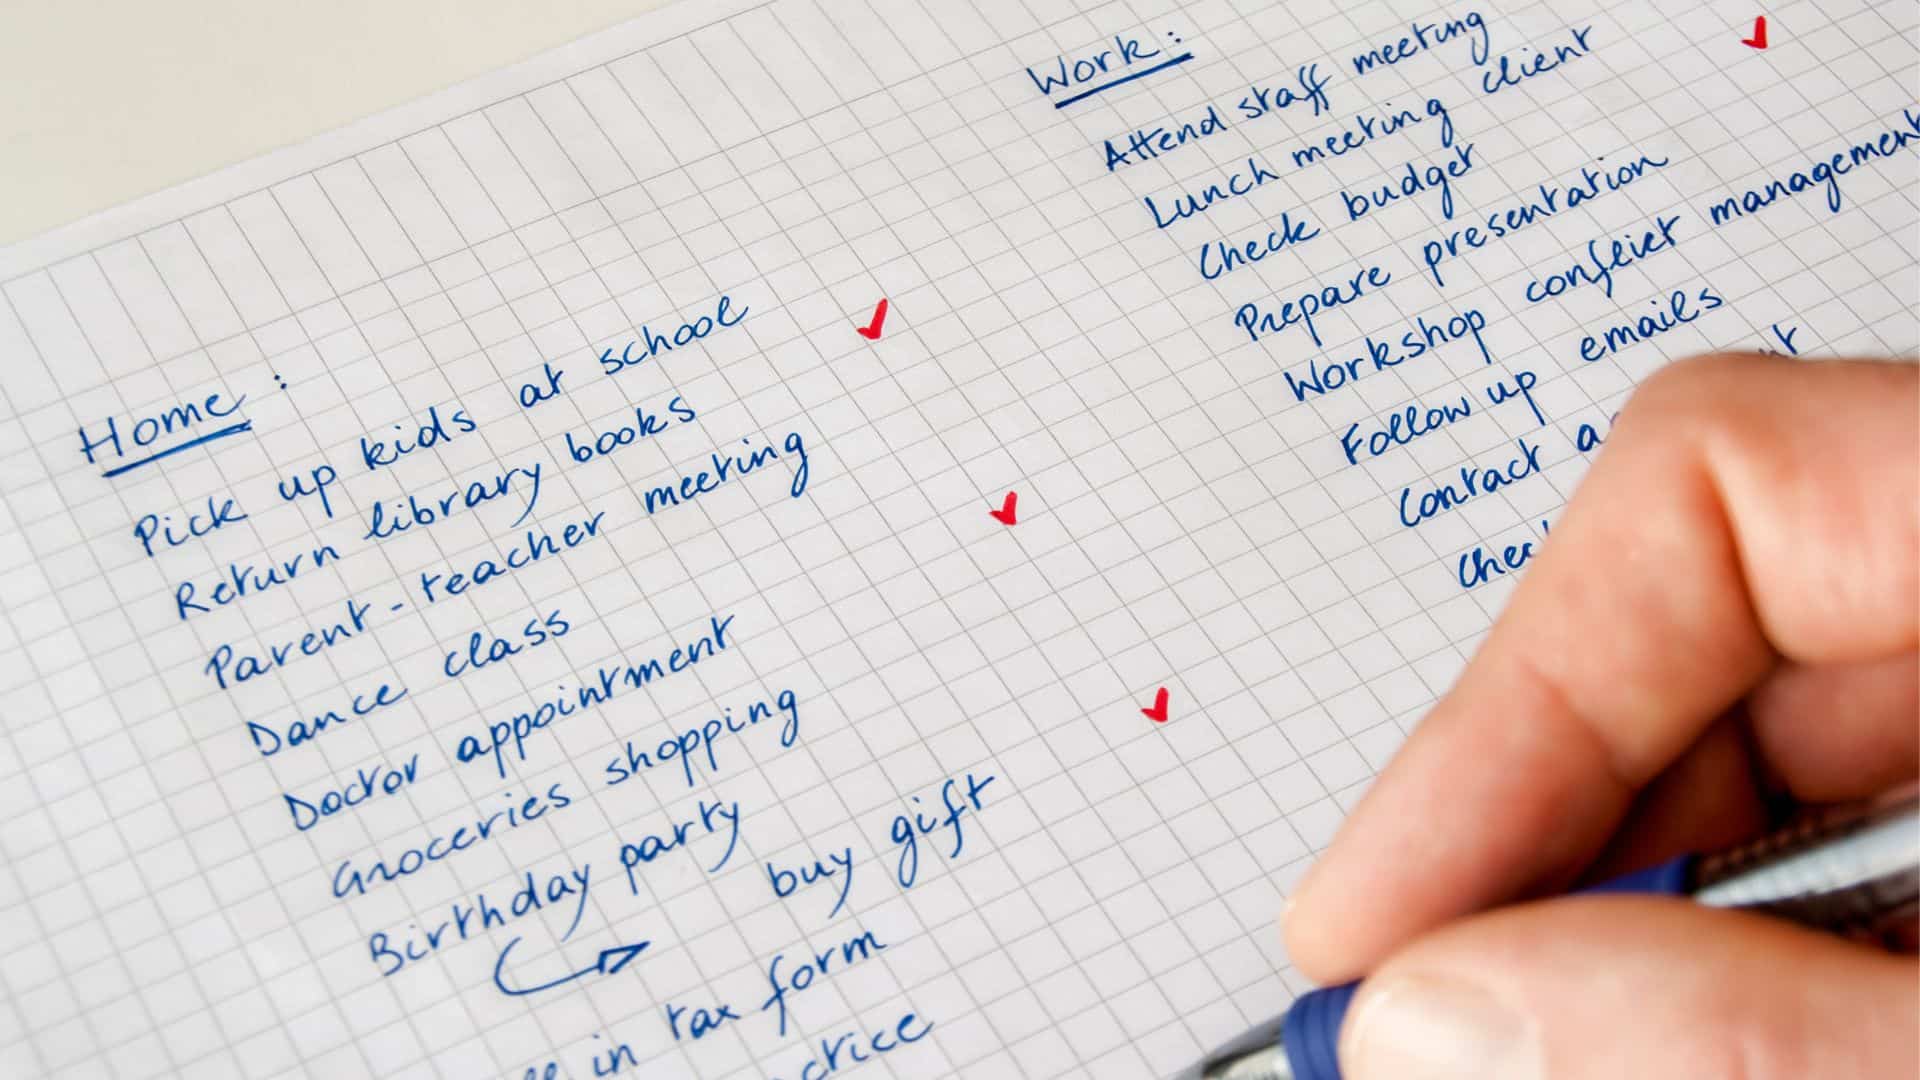 Home:
Pick up kids at school
Return library books
Parent-teacher meeting
Dance class
Doctor appointment
Groceries shopping
Birthday party
buy gift
in tax form
Work:
Attend staff meeting
Lunch meeting client
Check budget
Prepare presentation
Workshop conflict management
Follow up emails
Contact